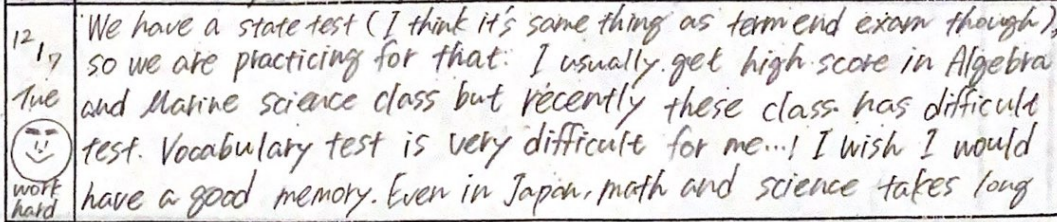 12/7
Tue
work
hard
We have a state test (I think it's same thing as term end exam though),
so we are practicing for that. I usually get high score in Algebra
and Marine science class but recently these class has difficult
test. Vocabulary test is very difficult for me...! I wish I would
have a good memory. Even in Japan, math and science takes long